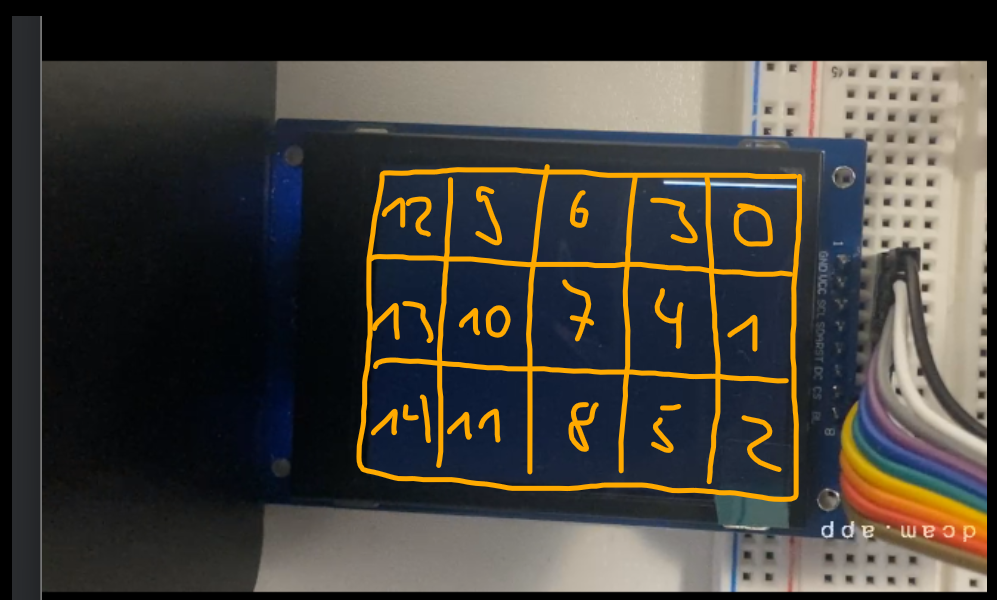 12 9 6 3 0
13 10 7 4 1
14 11 8 5 2
1
GND VCC SCL SDA RST DC CS BL
8
dcam.app